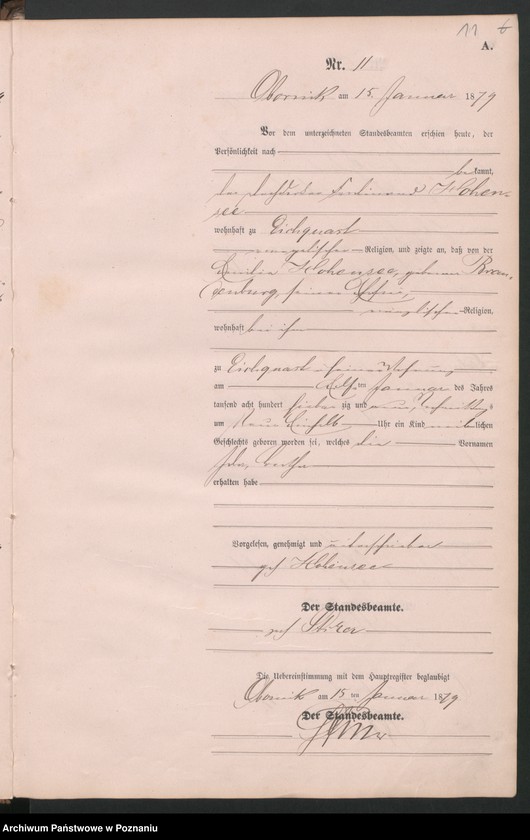 11
A.
Nr. 11
Obornik am 15. Januar 1879
Vor dem unterzeichneten Standesbeamten erschien heute, der
Persönlichkeit nach
bekannt,
der Ferdinand Hohen-
see
wohnhaft zu Eichquast
evangelischer Religion, und zeigte an, daß von der
Emilie Hohensee, geborene Bran-
denburg, seiner Ehefrau,
evangelischer Religion,
wohnhaft bei ihm
zu Eichquast in seiner Wohnung
am elften Januar des Jahres
tausend acht hundert siebenzig und neun, Vormittags
um neun einhalb Uhr ein Kind weiblichen
Geschlechts geboren worden sei, welches die Vornamen
Ida, Bertha
erhalten habe
Vorgelesen, genehmigt und unterschrieben
gez Hohensee
Der Standesbeamte.
gez
Die Uebereinstimmung mit dem Hauptregister beglaubigt
Obornik am 15 ten Januar 1879
Der Standesbeamte.
Archiwum Państwowe w Poznaniu